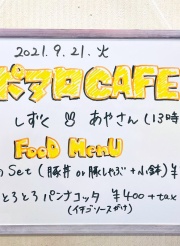 2021.9.21.火
ポタロCAFE
しずく あやさん(13時
FOOD MENU
Set (豚丼 or 豚しゃぶ+小鉢) ¥
とろとろパンナコッタ ¥400+tax
(イチゴソースがけ)